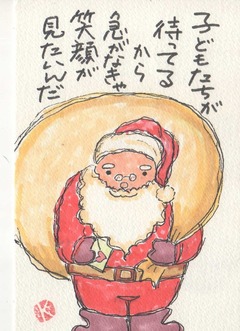 子どもたちが
待ってる
から
急がなきゃ
笑顔が
見たいんだ